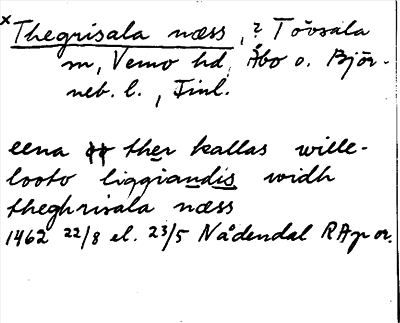 x Thegrisala næss, ? Tövsala
sn, Vemo hd, Åbo o. Björ-
neb. l., Finl.
eena öö ther kallas wille-
looto liggiandis widh
theghrisala næss
1462 22/8 el. 23/5 Nådendal RAp or.